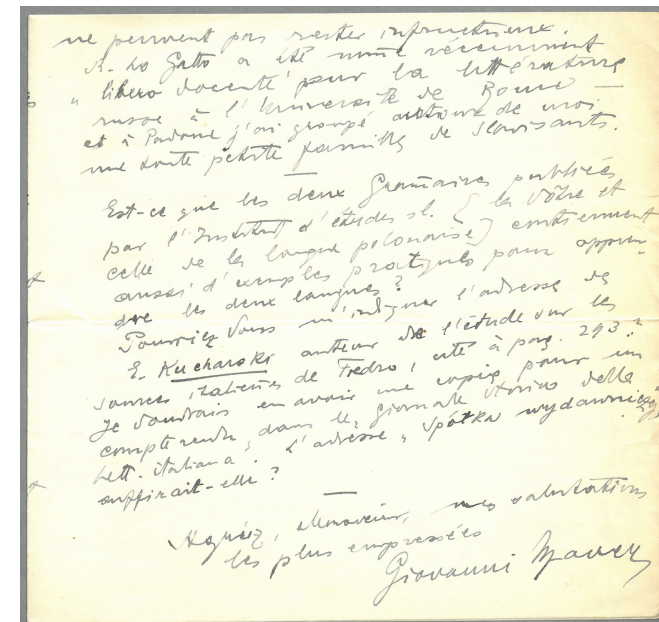 ne peuvent pas rester infructueux.
M. Lo Gatto a été nommé récemment
"libero docente" pour la littérature
russe à l'Université de Rome —
et à Padoue j'ai groupé autour de moi
une toute petite famille de slavisants.
Est-ce que les deux Grammaires publiées
par l'Institut d'études sl. (la Vôtre et
celle de la langue polonaise) contiennent
aussi d'exemples pratiques pour appren-
dre les deux langues?
Pourriez Vous m'indiquer l'adresse de
E. Kucharski auteur de l'étude sur les
sources italiennes de Fredro, cité à pag. 293?
Je voudrais en avoir une copie pour un
compte rendu dans le "Giornale storico della
lett. italiana". L'adresse "Spółka wydawnicza"
suffirait-elle?
Agréez, Monsieur, mes salutations
les plus empressées
Giovanni Maver